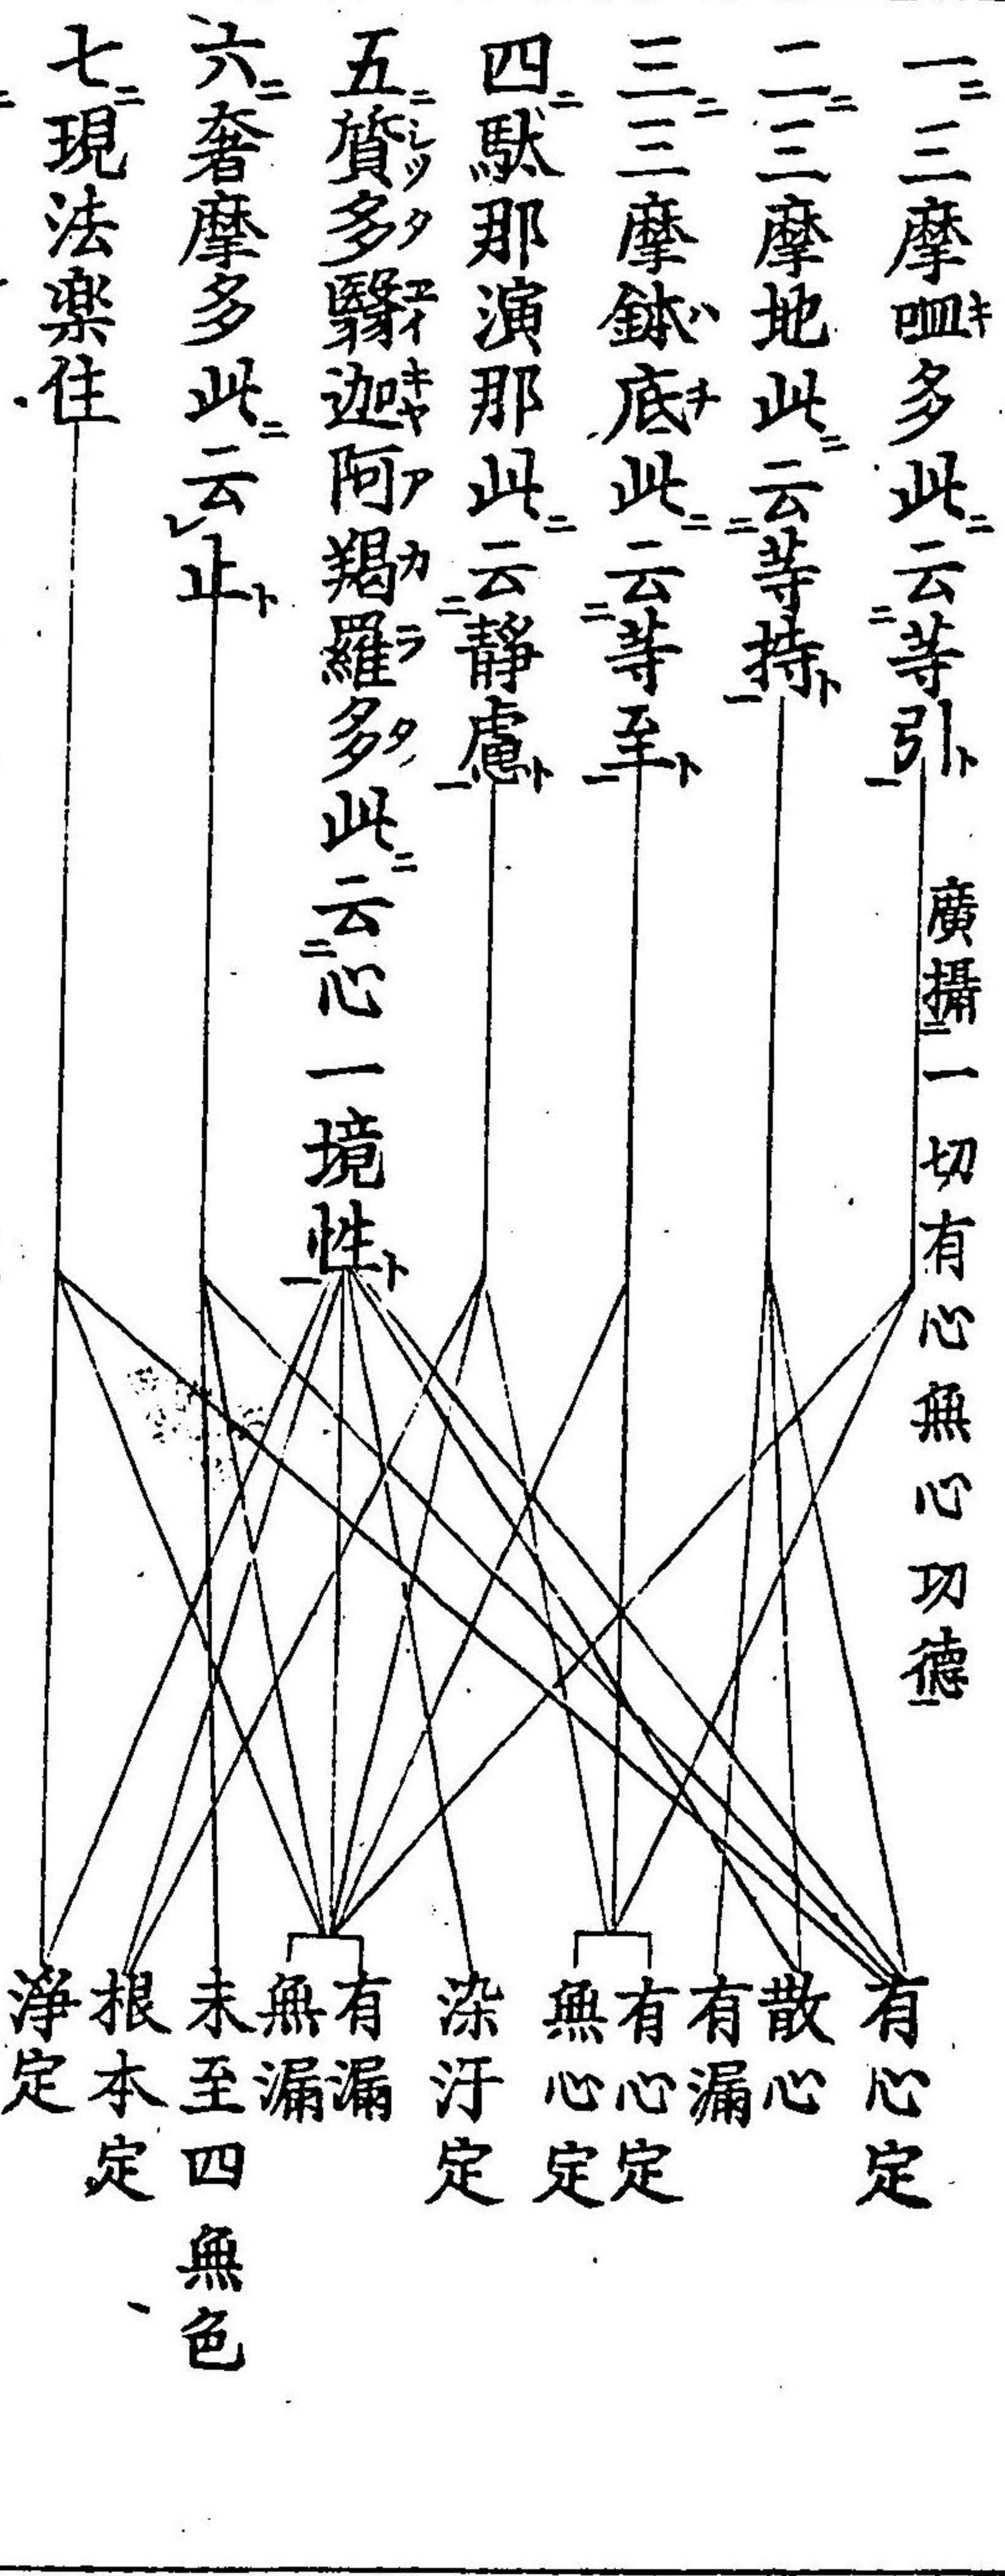 一三摩呬多此云等引
廣攝一切有心無心功德
二三摩地此云等持
三三摩鉢底此云等至
四馱那演那此云靜慮
五質多翳迦阿羯羅多此云心一境性
六奢摩多此云止
七現法楽住
有心定
散心
有漏
有心定
無心定
染汙定
有漏
無漏
未至四無色
根本定
淨定